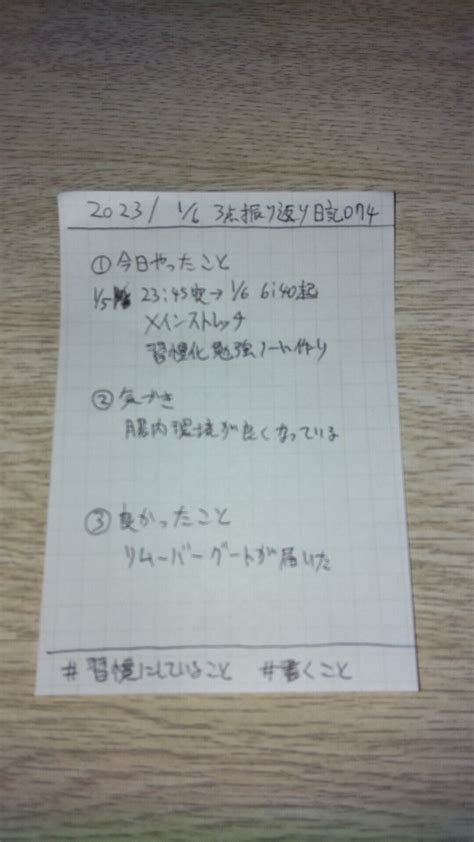 2023/ 1/6 3点振り返り日記074
①今日やったこと
1/5 23:45安→1/6 6:40起
メインストレッチ
習慣化勉強ノート作り
②気づき
腸内環境が良くなっている
③良かったこと
リムーバーグートが届いた
#習慣にしていること #書くこと